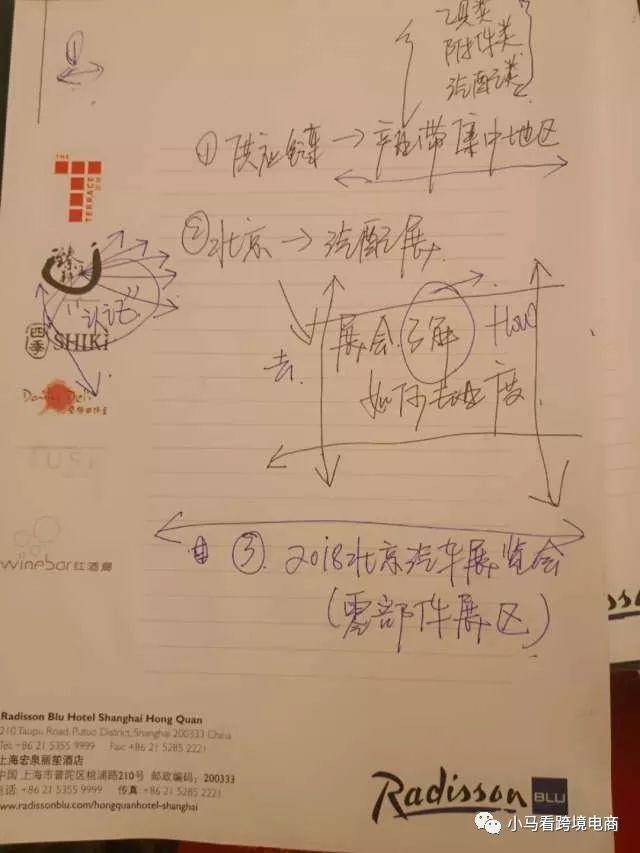 ①
工具类
附件类
汽配类
①供应链 → 产业带集中地区
THE
TERRACE
②北京 → 汽配展
"认证"
四季 SHIKI
去
展会了解 How
如何去
Deli
winebar红酒廊
③ 2018北京汽车展览会
(零部件展区)
Radisson Blu Hotel Shanghai Hong Quan
210 Taopu Road, Putuo District, Shanghai 200333 China
Tel: +86 21 5355 9999 Fax: +86 21 5285 2221
上海宏泉丽笙酒店
中国 上海市普陀区桃浦路210号 邮政编码：200333
电话: +86 21 5355 9999 传真: +86 21 5285 2221
www.radissonblu.com/hongquanhotel-shanghai
Radisson BLU
小马看跨境电商